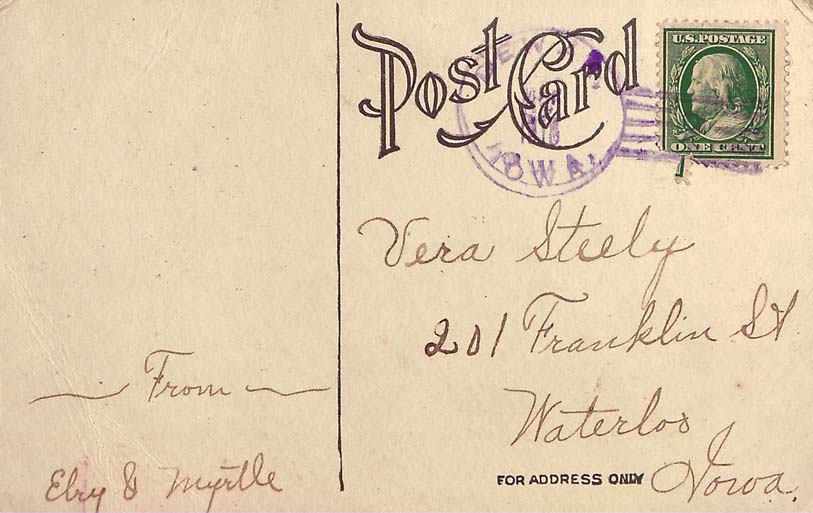 Post Card
U.S. POSTAGE
ONE CENT
1910
IOWA
Vera Steely
201 Franklin St
Waterloo
Iowa.
From
Elry & Myrtle
FOR ADDRESS ONLY